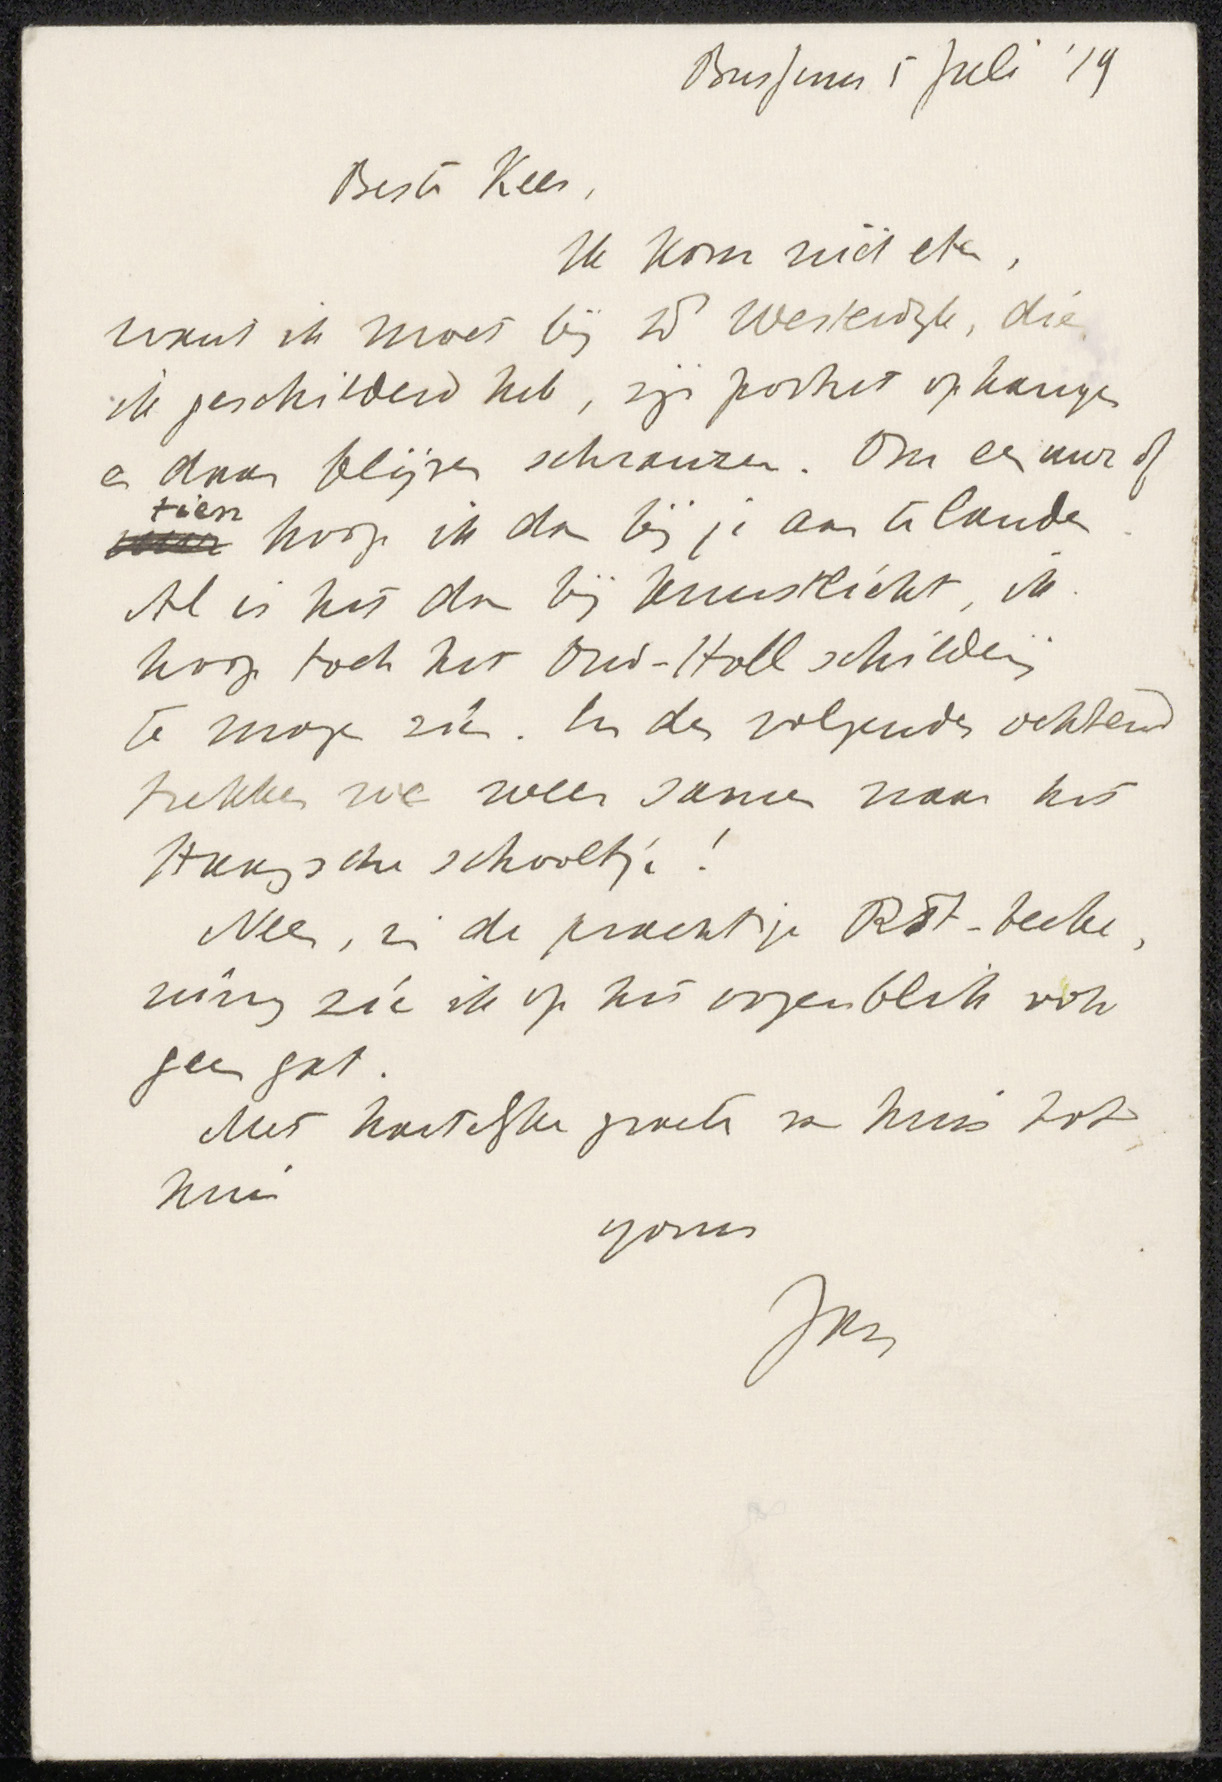 Bussum 5 Juli '19
Beste Kees,
Ik kom niet eten,
want ik moet bij Westerdijk, die
ik geschilderd heb, zijn portret ophangen
en daar blijven schranzen. Om een uur of
tien hoop ik dan bij je aan te landen.
Al is het dan bij kunstlicht, ik
hoop toch het Oud-Holl schilderij
te mogen zien. En den volgenden ochtend
trekken we weer samen naar het
Haagsche schooltje!
Neen, in de prachtige beeke,
zie ik op het oogenblik ook
geen gat.
Met hartelijke groeten van huis tot
huis
yours
Jan